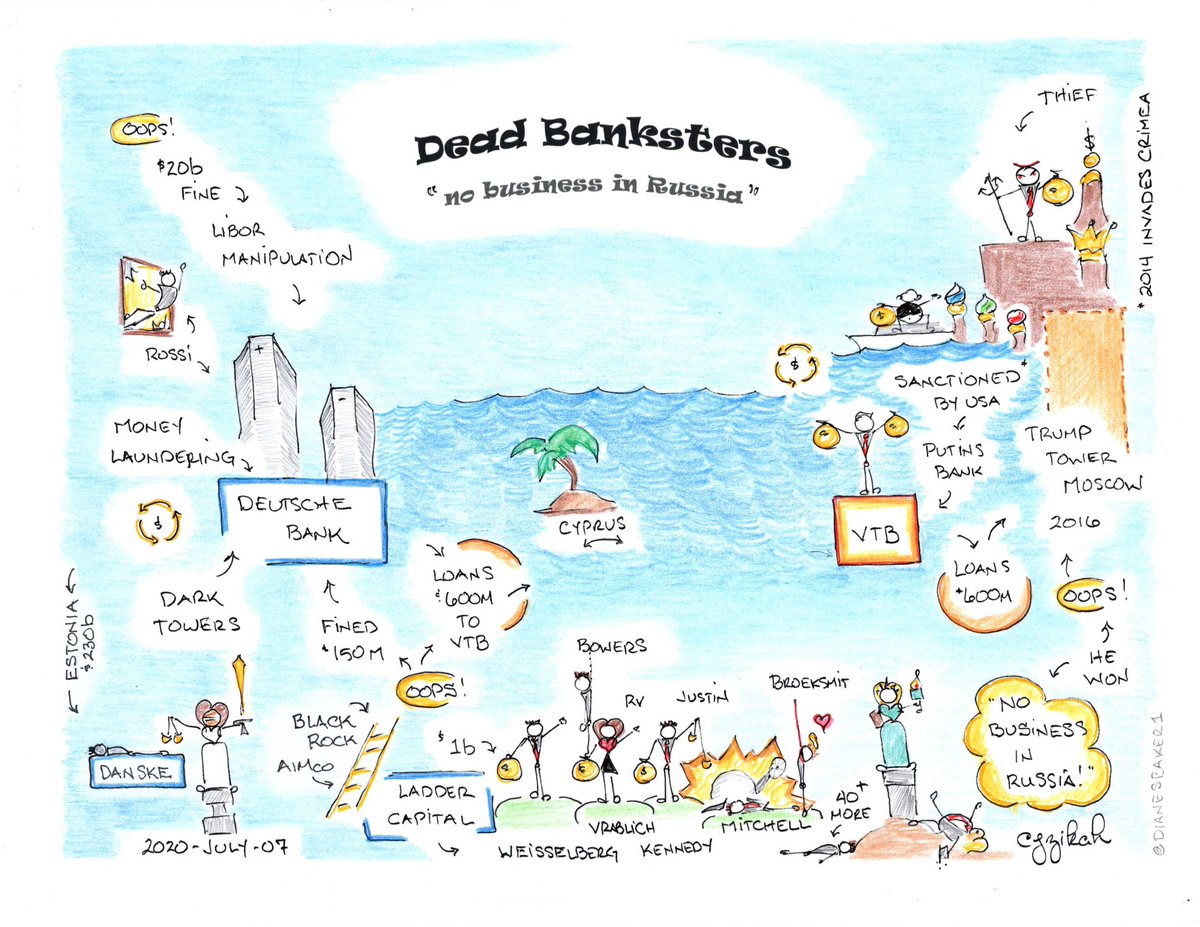 Dead Banksters
"no business in Russia"
OOPS!
$20b
FINE
LIBOR
MANIPULATION
ROSSI
MONEY
LAUNDERING
$
DEUTSCHE
BANK
DARK
TOWERS
FINED
$150M
LOANS
$600M
TO
VTB
OOPS!
ESTONIA
$230b
DANSKE
2020-JULY-07
BLACK
ROCK
AIMCO
LADDER
CAPITAL
$1b
BOWERS
RV
JUSTIN
BROEKSMIT
WEISSELBERG
VRABLICH
KENNEDY
MITCHELL
40+
MORE
CYPRUS
$
THIEF
*2014 INVADES CRIMEA
SANCTIONED*
BY USA
PUTINS
BANK
VTB
LOANS
$600M
TRUMP
TOWER
MOSCOW
2016
OOPS!
HE
WON
"NO
BUSINESS
IN
RUSSIA!"
©DIANESBAKER1